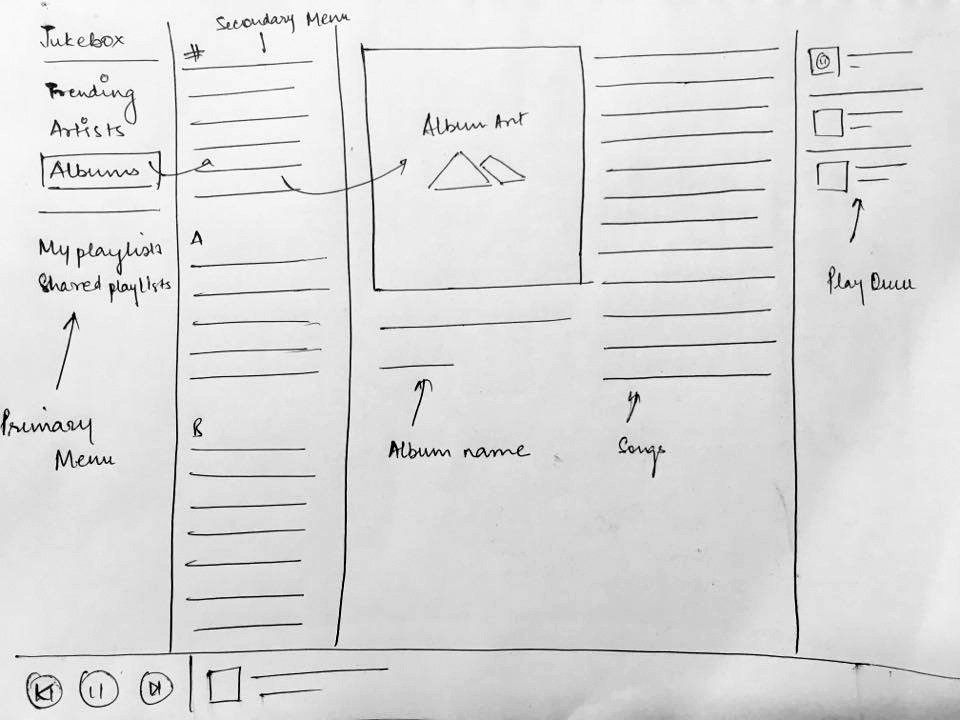 Jukebox
Trending
Artists
Albums
My playlists
Shared playlists
Primary
Menu
Secondary Menu
#
a
A
B
Album Art
Album name
Songs
Play Queue